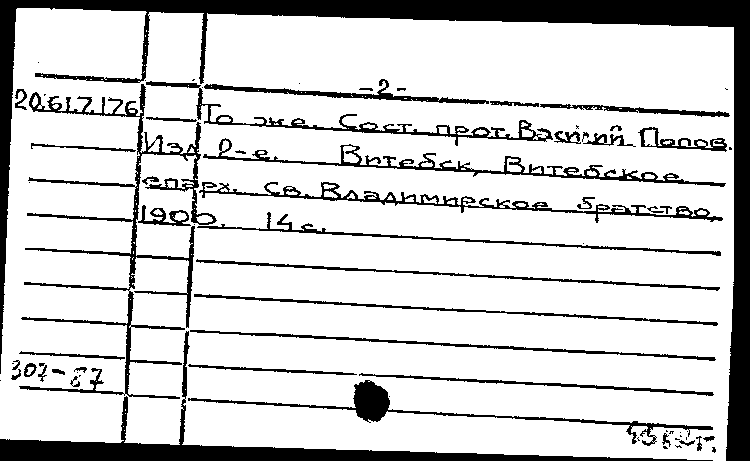 -2-
20.61.7.176 То же. Сост. прот. Василий Попов.
Изд. 2-е. Витебск, Витебское
епарх. св. Владимирское братство,
1900. 14 с.
307-87